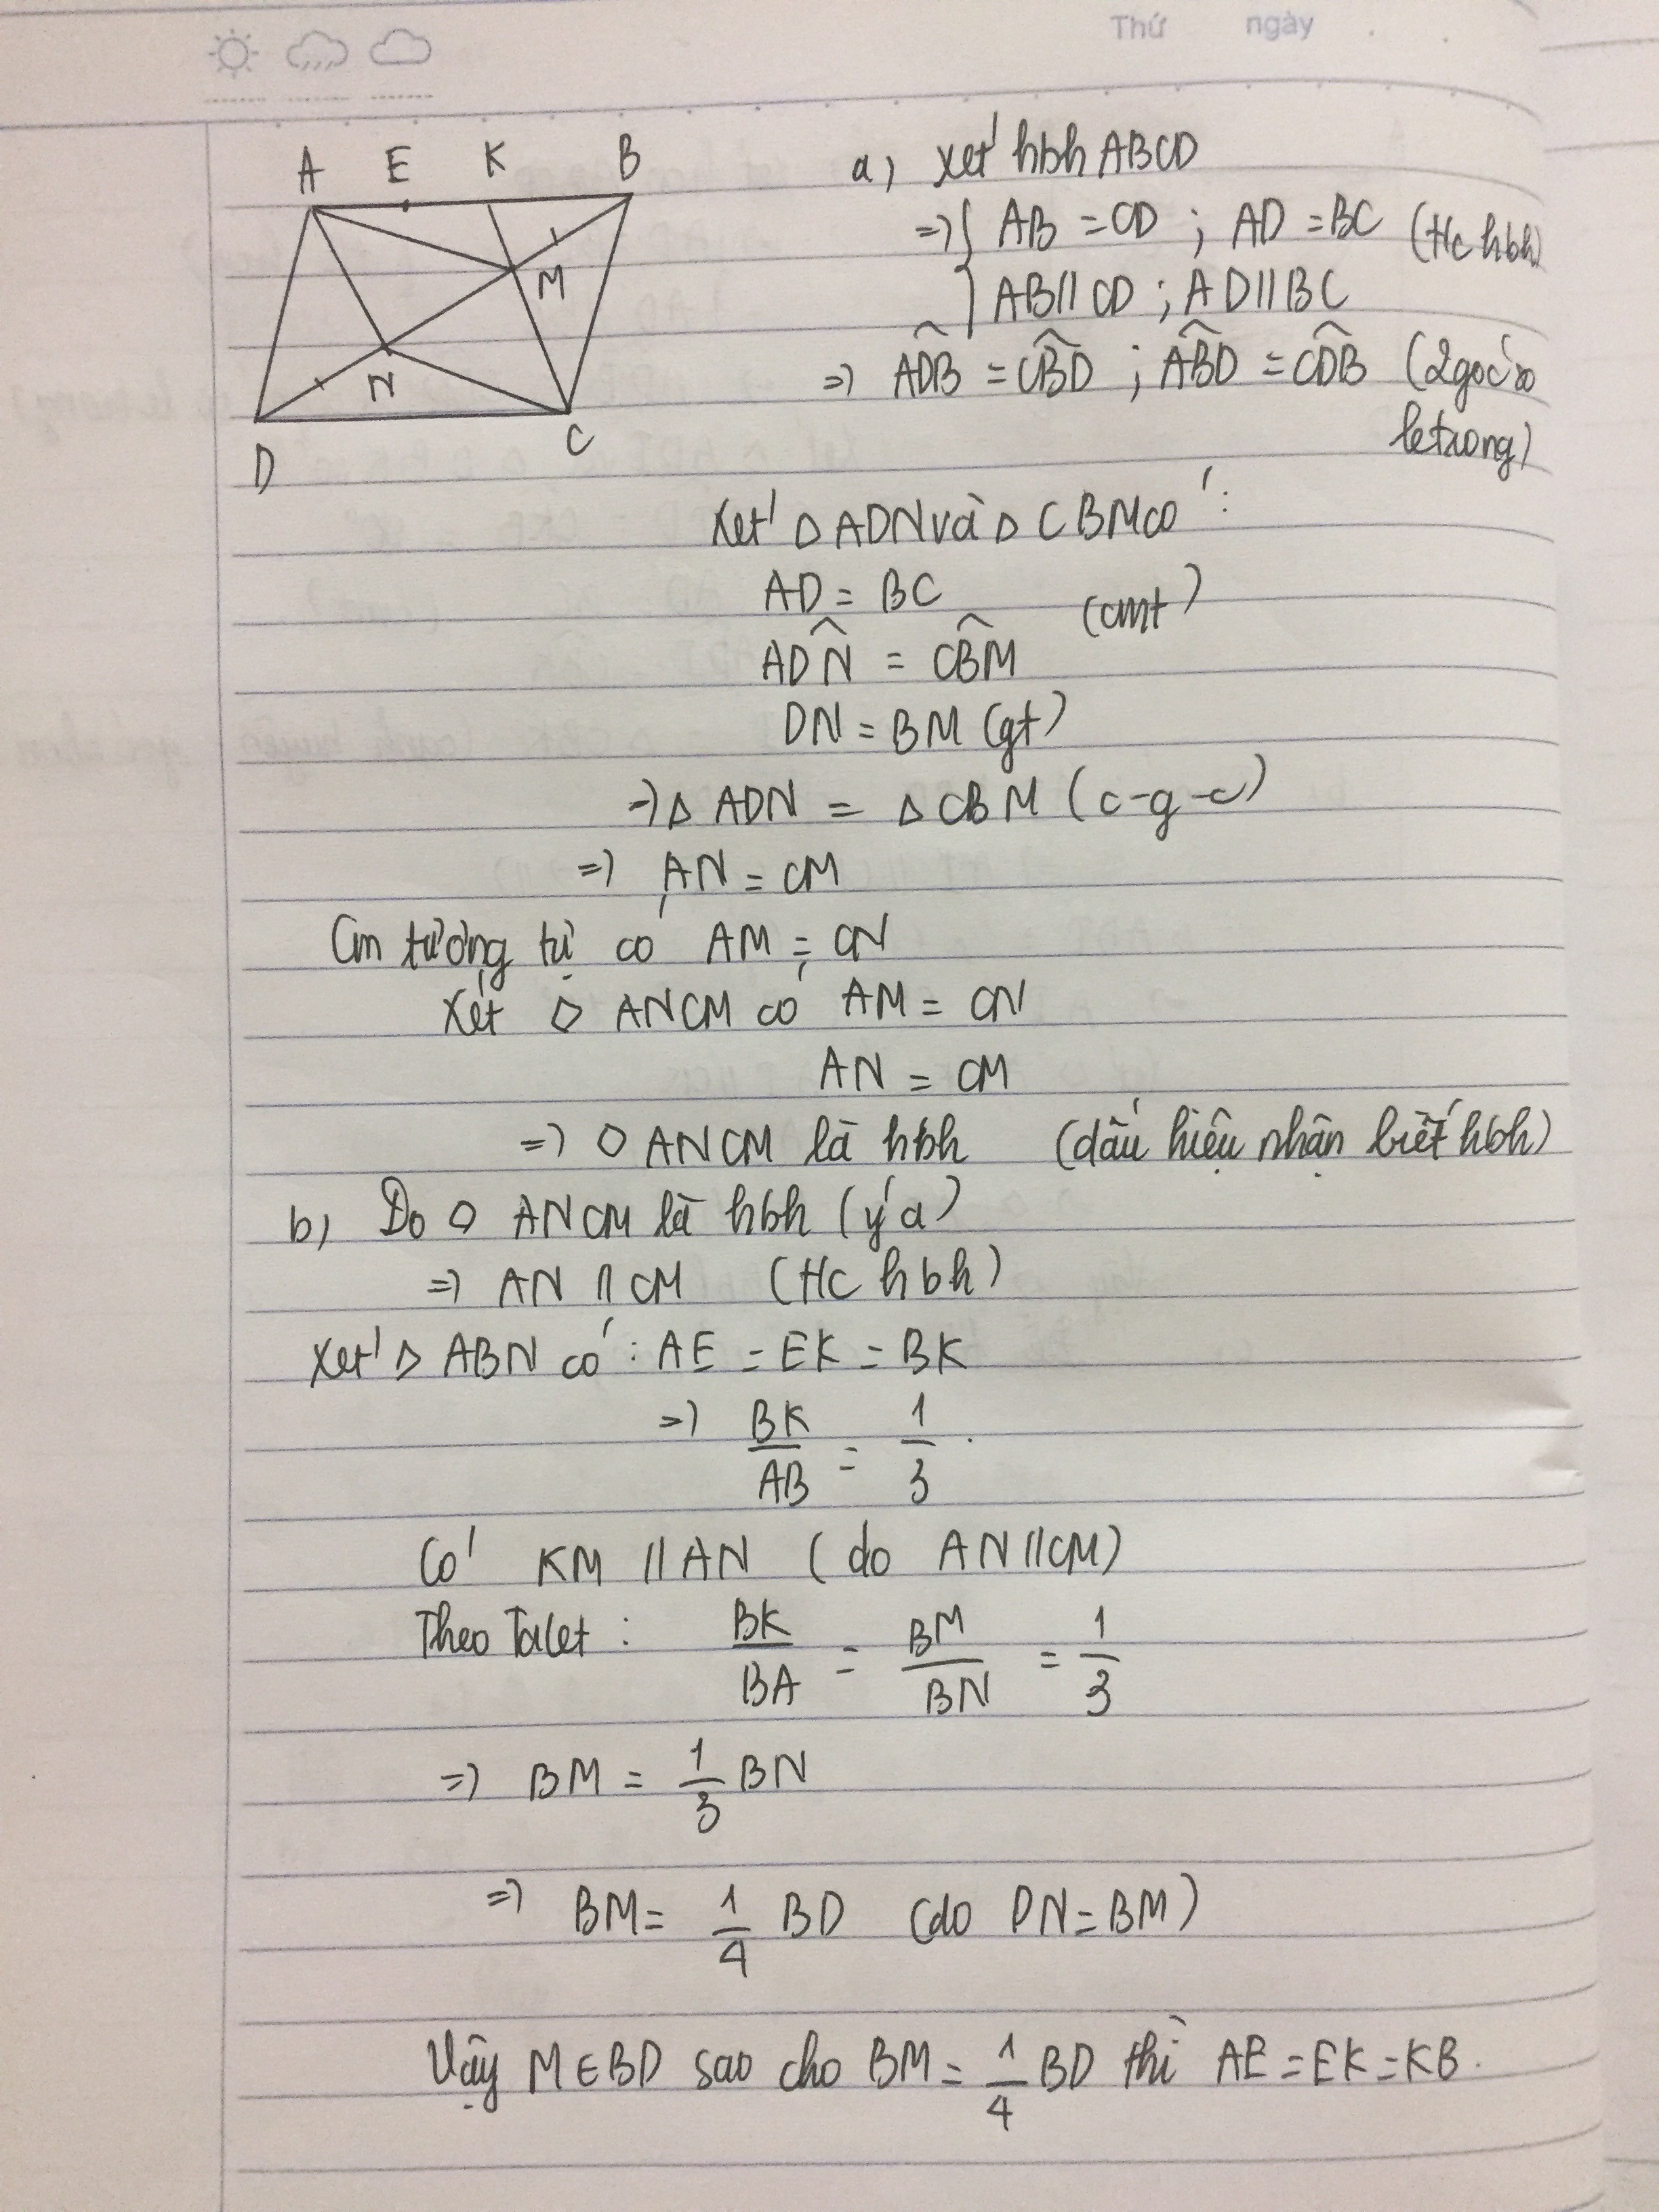 Thứ ngày
A E K B
M
N
D C
a, Xét hbh ABCD
=> { AB = CD ; AD = BC (t/c hbh)
AB // CD ; AD // BC
=> ADB̂ = CB̂D ; AB̂D = CD̂B (2 góc so
le trong)
Xét Δ ADN và Δ CBM có :
AD = BC
(cmt)
ADN̂ = CB̂M
DN = BM (gt)
=> Δ ADN = Δ CBM (c-g-c)
=> AN = CM
Cm tương tự có AM = CN
Xét ◇ ANCM có AM = CN
AN = CM
=> ◇ ANCM là hbh (dấu hiệu nhận biết hbh)
b, Do ◇ ANCM là hbh (ý a)
=> AN // CM (t/c hbh)
Xét Δ ABN có : AE = EK = BK
=> BK/AB = 1/3 .
Có KM // AN (do AN // CM)
Theo Talet : BK/BA = BM/BN = 1/3
=> BM = 1/3 BN
=> BM = 1/4 BD (do DN = BM)
Vậy M ∈ BD sao cho BM = 1/4 BD thì AE = EK = KB .